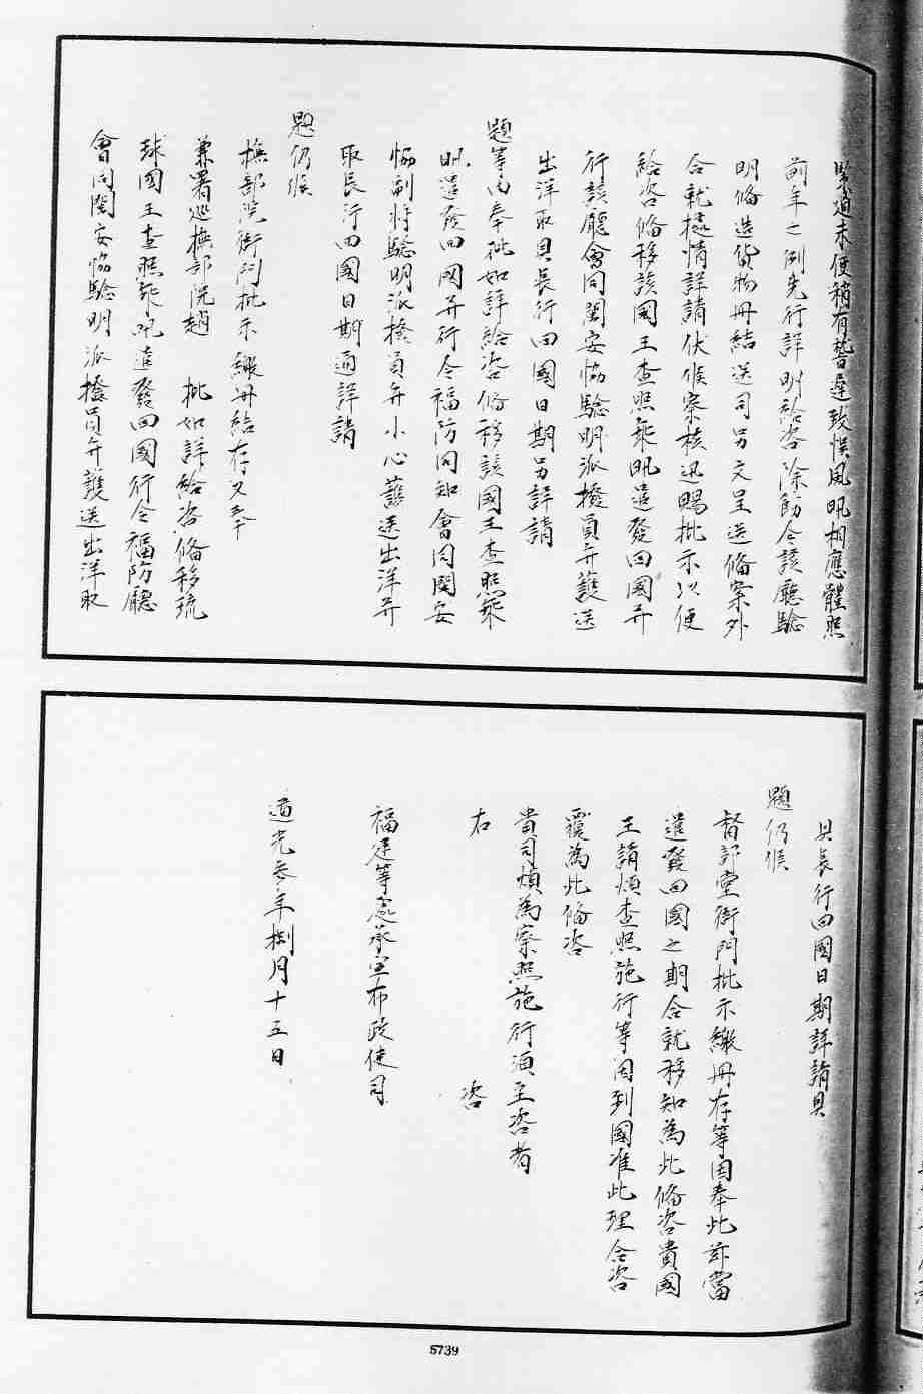 緊迫未便稍有暋遲致悞風帆相應體照
前年之例先行詳明給咨除飭令該廳驗
明俻造貨物冊結送司另文呈送俻案外
合就揻情詳請伏候察核迅賜批示以便
給咨俻移該國王查照乘帆遣發回國并
行該廳會同閩安恊驗明派撥員弁護送
出洋取具長行回國日期另詳請
題等由奉批如詳給咨俻移該國王查照乘
帆遣發回國并行令福防同知會同閩安
恊副將驗明派撥員弁小心護送出洋并
取長行回國日期通詳請
題仍候
撫部院衙門批示繳冊結存又奉
兼署巡撫部院趙 批如詳給咨俻移琉
球國王查照乘帆遣發回國行令福防廳
會同閩安恊驗明派撥員弁護送出洋取
具長行回國日期詳請具
題仍候
督部堂衙門批示繳冊存等因奉此茲當
遣發回國之期合就移知為此俻咨貴國
王請煩查照施行等因到國准此理合咨
覆為此俻咨
貴司煩為察照施行須至咨者
右 咨
福建等處承宣布政使司
道光叁年捌月十五日
5739